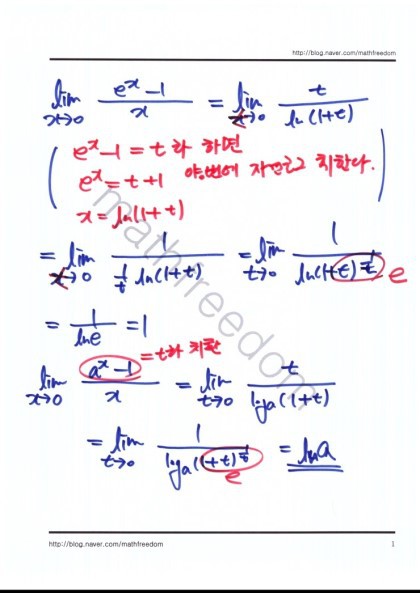 http://blog.naver.com/mathfreedom
lim x→0 (e^x-1)/x = lim t→0 t/ln(1+t)
e^x-1=t라 하면
e^x=t+1 양변에 자연로그 취한다.
x=ln(1+t)
= lim t→0 1/(1/t ln(1+t)) = lim t→0 1/ln(1+t)^(1/t) e
= 1/lne = 1
lim x→0 (a^x-1)/x =t라 치환 = lim t→0 t/log_a(1+t)
= lim t→0 1/log_a(1+t)^(1/t) e = lna
mathfreedom
http://blog.naver.com/mathfreedom 1